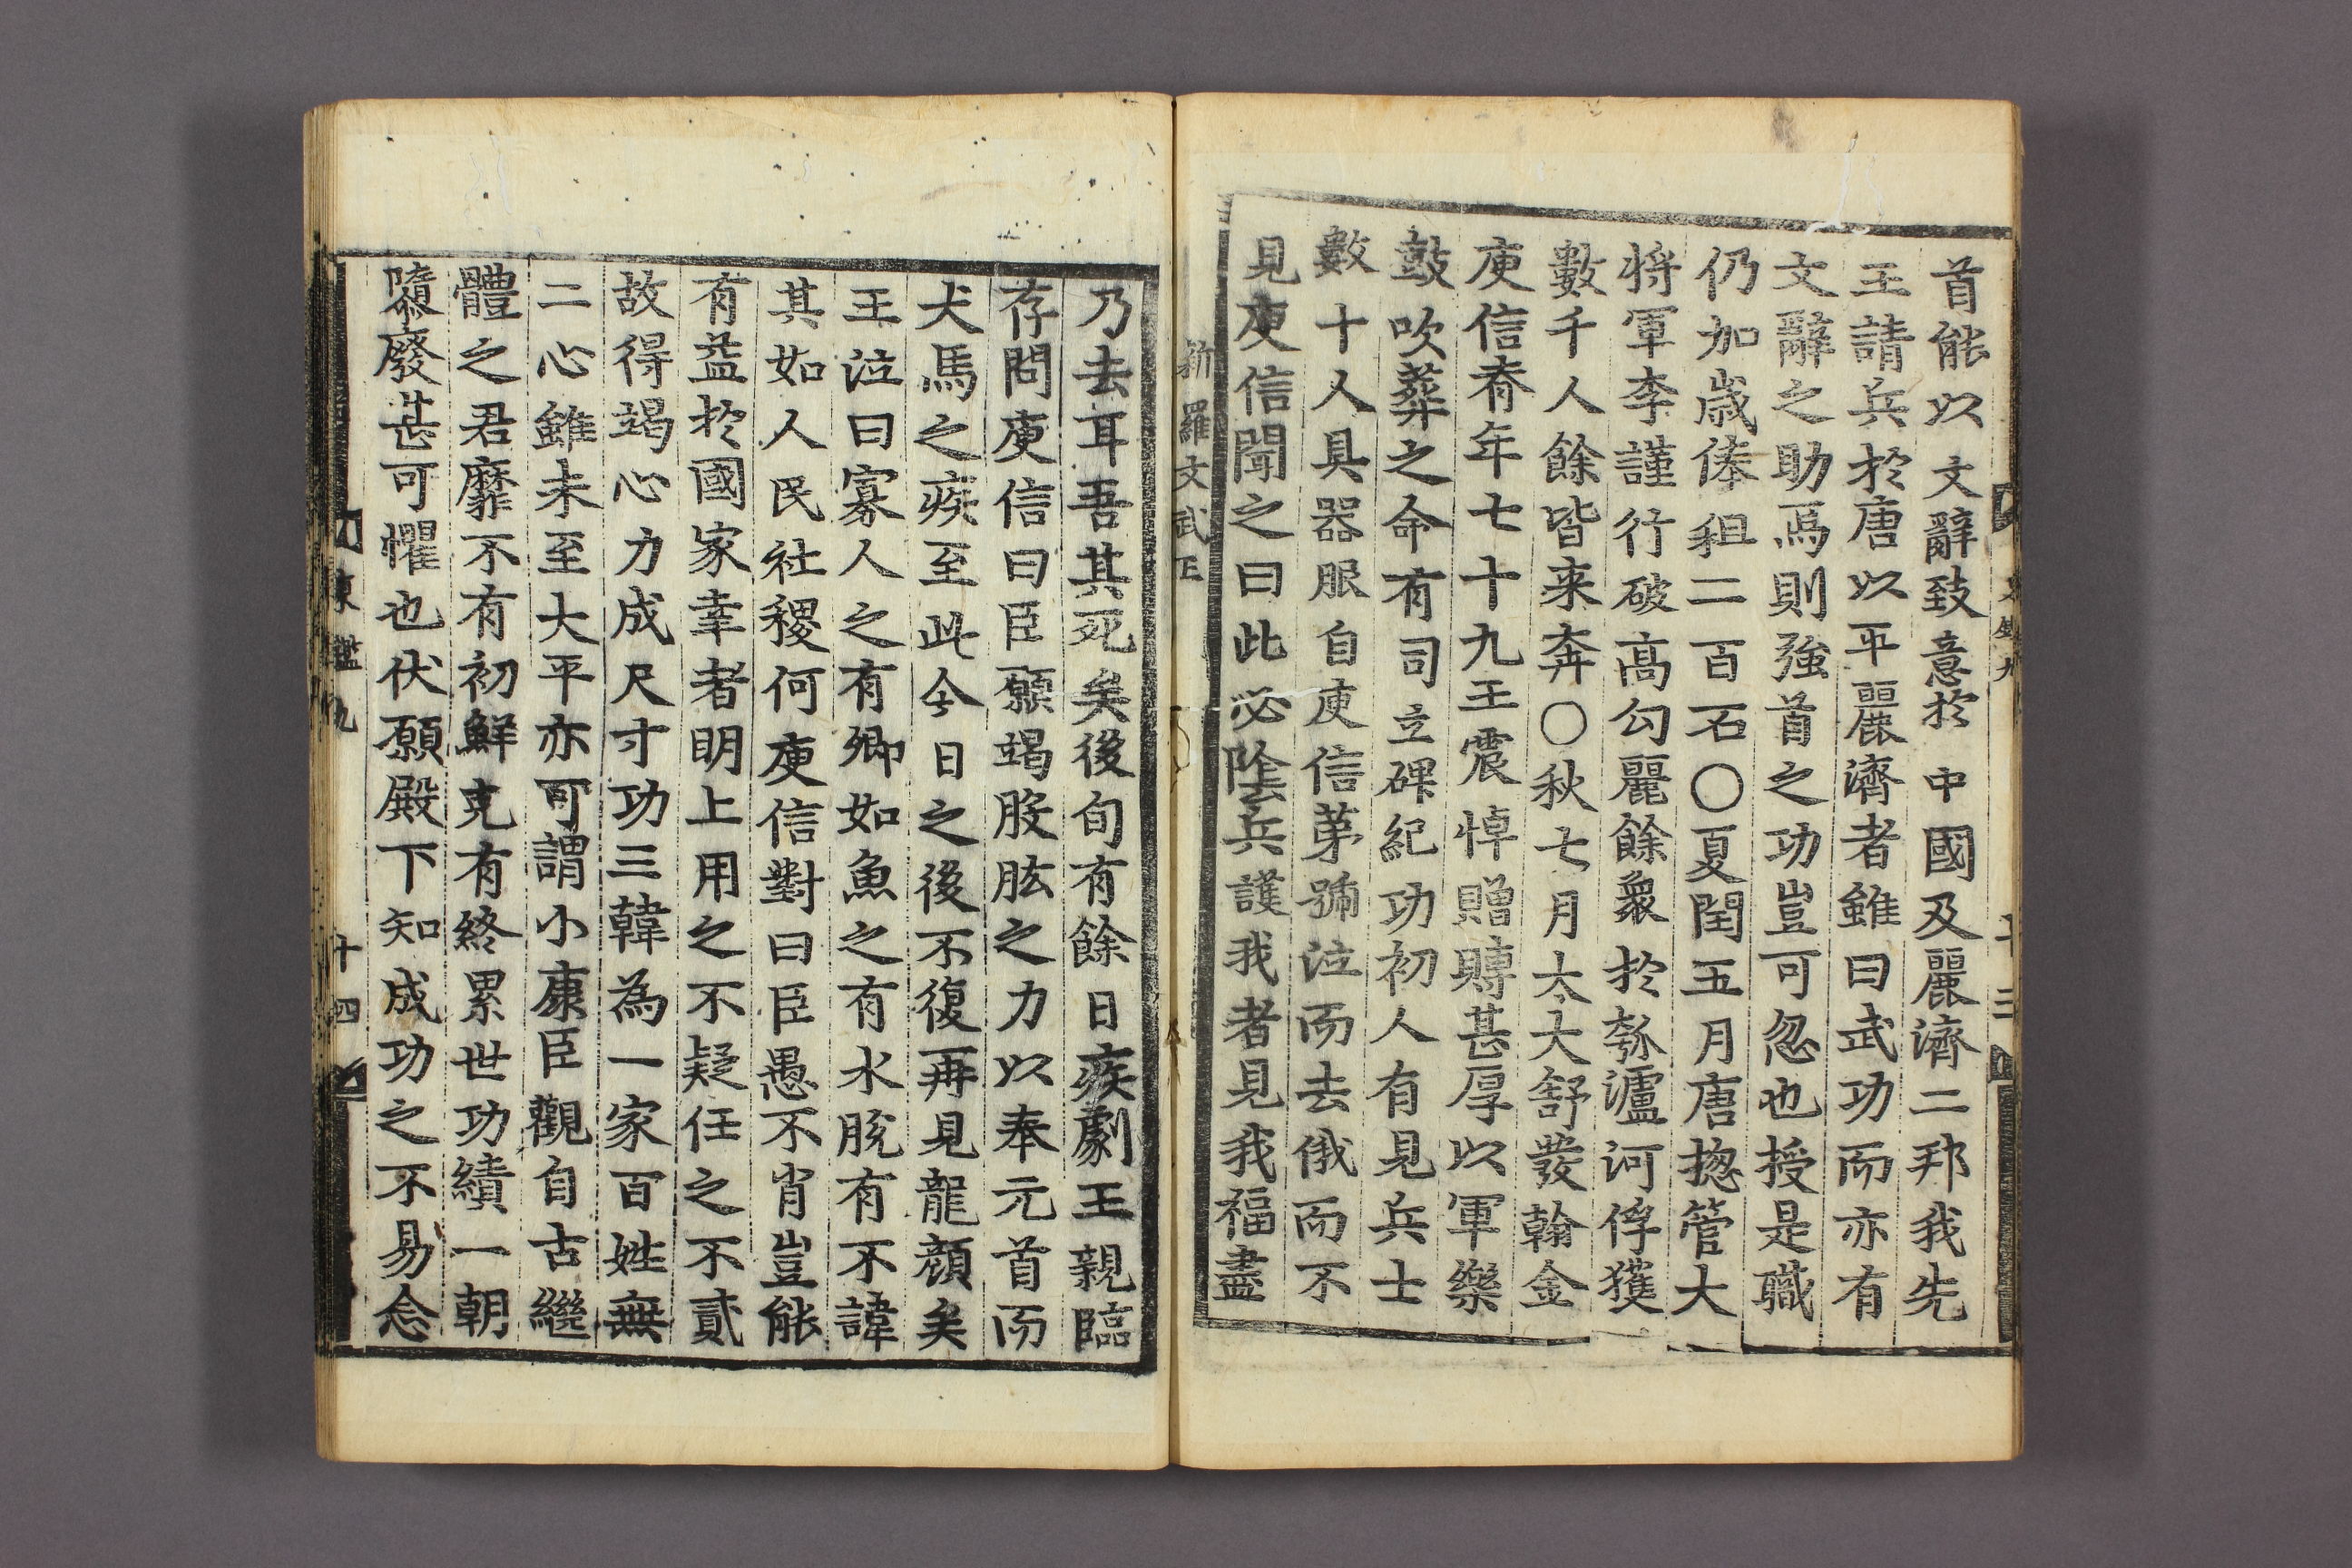 首能以文辭致意於中國及麗濟二邦我先
王請兵於唐以平麗濟者雖曰武功而亦有
文辭之助焉則強首之功豈可忽也授是職
仍加歲俸租二百石○夏閏五月唐摠管大
將軍李謹行破高勾麗餘衆於瓠瀘河俘獲
數千人餘皆来奔○秋七月太大舒發翰金
庾信卒年七十九王震悼贈賻甚厚以軍樂
鼓吹葬之命有司立碑紀功初人有見兵士
數十人具器服自庾信第號泣而去俄而不
見庾信聞之曰此必陰兵護我者見我福盡
新羅文武王
乃去耳吾其死矣後旬有餘日疾劇王親臨
存問庾信曰臣願竭股肱之力以奉元首而
犬馬之疾至此今日之後不復再見龍顔矣
王泣曰寡人之有卿如魚之有水脫有不諱
其如人民社稷何庾信對曰臣愚不肖豈能
有益於國家幸者明上用之不疑任之不貳
故得竭心力成尺寸功三韓為一家百姓無
二心雖未至大平亦可謂小康臣觀自古繼
體之君靡不有初鮮克有終累世功績一朝
隳廢甚可懼也伏願殿下知成功之不易念
東鑑九
十四